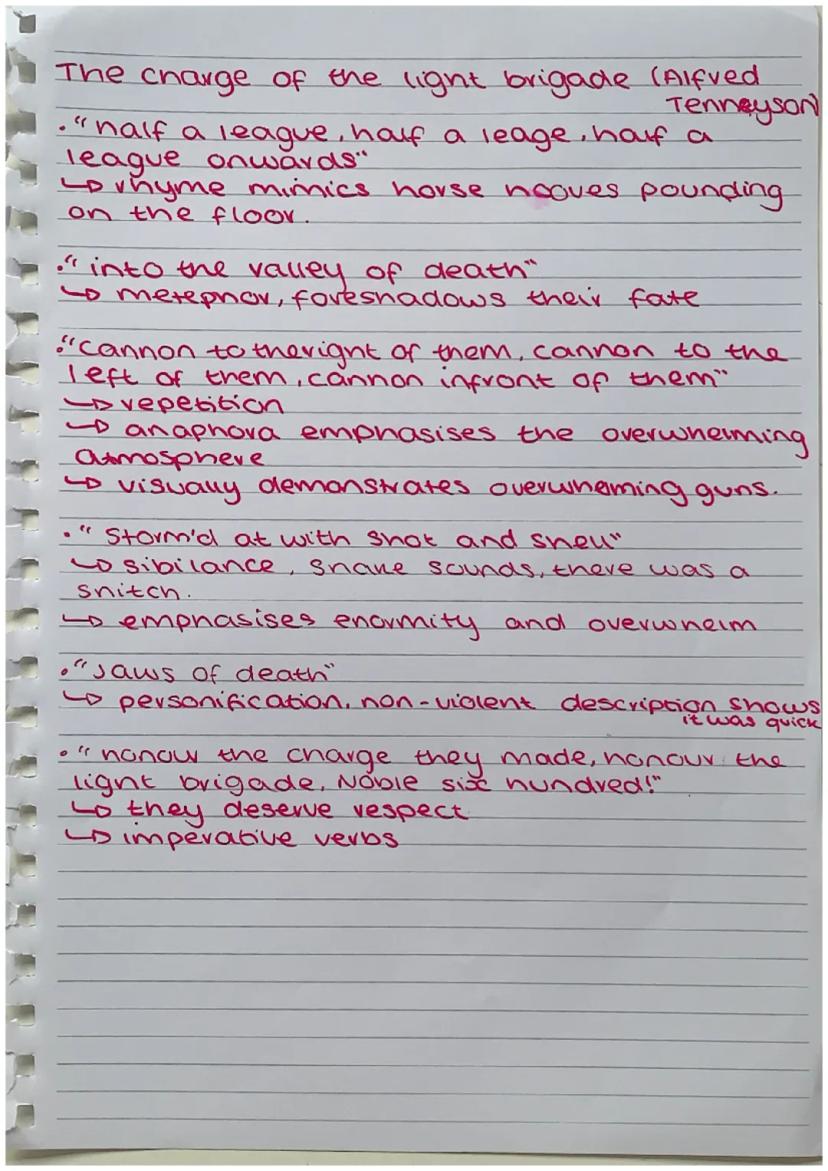 The charge of the light brigade (Alfred
Tenneyson)
• "half a league, half a leage, half a
league onwards"
↳ rhyme mimics horse hooves pounding
on the floor.
• "into the valley of death"
↳ metephor, foreshadows their fate
• "cannon to the right of them, cannon to the
left of them, cannon infront of them"
↳ repetition
↳ anaphora emphasises the overwhelming
atmosphere
↳ visually demonstrates overwheming guns.
• "Storm'd at with shot and shell"
↳ sibilance, snake sounds, there was a
snitch.
↳ emphasises enormity and overwhelm
• "Jaws of death"
↳ personification, non-violent description shows
it was quick
• "honour the charge they made, honour the
light brigade, Noble six hundred!"
↳ they deserve respect
↳ imperative verbs